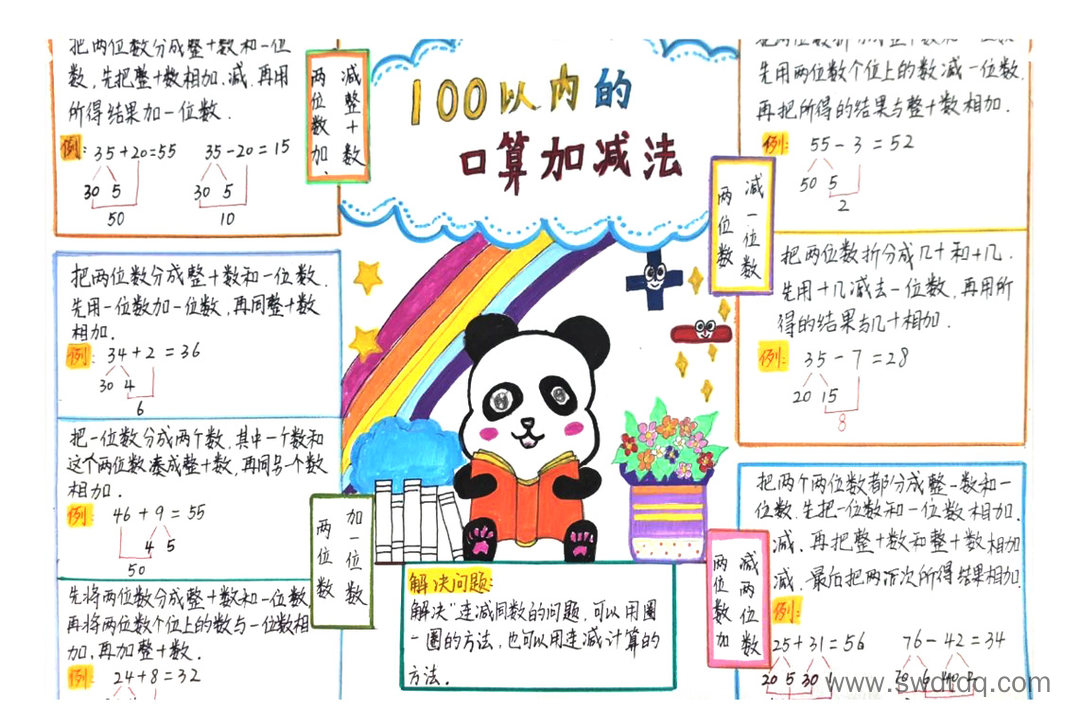 100以内的
口算加减法
把两位数分成整十数和一位
数，先把整十数相加、减，再用
所得结果加一位数．
例：35+20=55 35-20=15
30 5 30 5
50 10
两位数加、
减整十数
把两位数分成整十数和一位数，
先用一位数加一位数，再同整十数
相加．
例：34+2=36
30 4
6
把一位数分成两个数，其中一个数和
这个两位数凑成整十数，再同另一个数
相加．
例：46+9=55
4 5
50
两位数
加一位数
先将两位数分成整十数和一位数，
再将两位数个位上的数与一位数相
加，再加整十数．
例：24+8=32
解决问题：
解决"连减同数的问题，可以用圈
一圈的方法，也可以用连减计算的
方法．
先用两位数个位上的数减一位数，
再把所得的结果与整十数相加．
例：55-3=52
50 5
2
两位数
减一位数
把两位数折分成几十和十几．
先用十几减去一位数，再用所
得的结果与几十相加．
例：35-7=28
20 15
8
两位数加
减两位数
把两个两位数都分成整一数和一
位数，先把一位数和一位数相加、
减，再把整十数和整十数相加
减，最后把两次所得结果相加．
例：
25+31=56 76-42=34
20 5 30
www.swdtdq.com